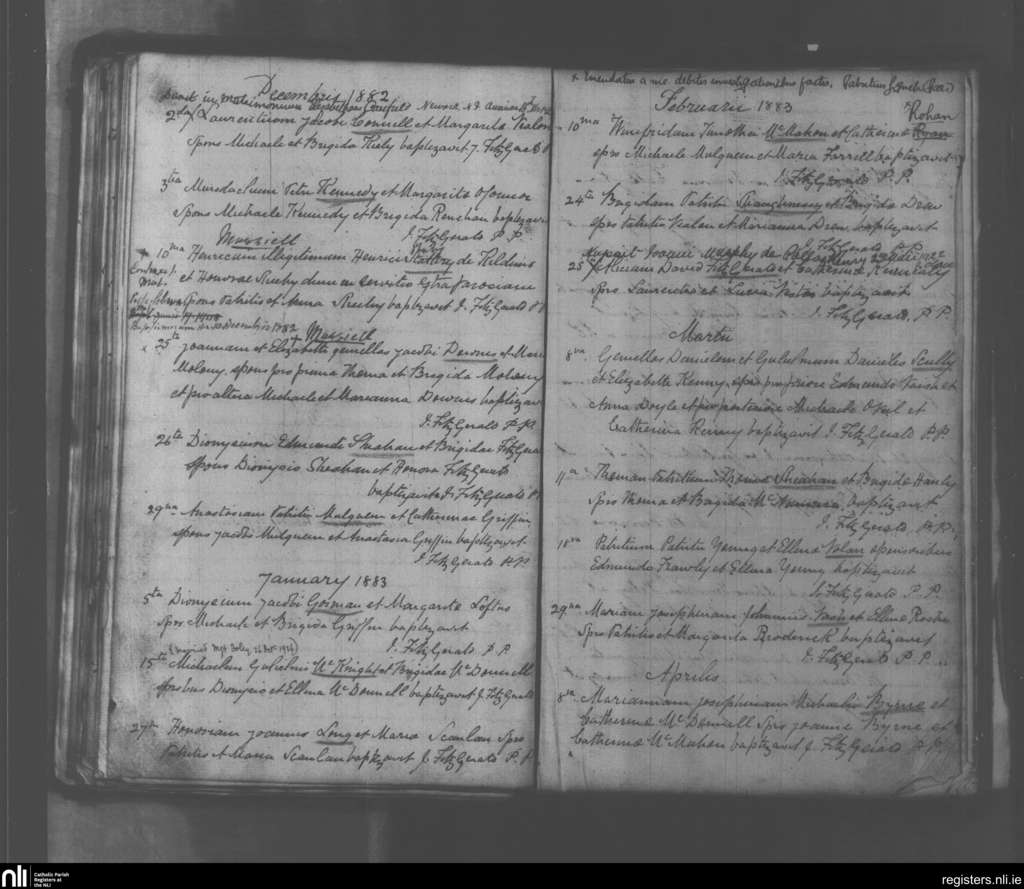 Decembris 1882
duxit in matrimonium Newark N.J.
2da Laurentium Jacobi Connell et Margarita
Spons Michaele et Brigida Kiely baptizavit J. FitzGerald P.P.
3tia Muredachum Petri Kennedy et Margarita O'Connor
Spons Michaele Kennedy et Brigida Renehan baptizavit
J. FitzGerald P.P.
10ma Henricum illegitimum Henrici de Kildimo
et Honorae Sheehy dum in servitio extra parociam
Spons Patritio et Anna Sheehy baptizavit J. FitzGerald P.P.
Decembris 1882
25ta Joannam et Elizabetha gemellas Jacobi Downes et Maria
Molony, spons pro prima Thoma et Brigida Molony
et pro altera Michaele et Marianna Downes baptizavit
J. FitzGerald P.P.
26ta Dionysium Edmundi Sheahan et Brigidae FitzGerald
Spons Dionysio Sheahan et Honora FitzGerald
baptizavit J. FitzGerald P.P.
29na Anastasiam Patritii Mulqueen et Catherinae Griffin
spons Jacobo Mulqueen et Anastasia Griffin baptizavit
J. FitzGerald P.P.
January 1883
5ta Dionysium Jacobi Gorman et Margarita Loftus
Spos Michaele et Brigida Griffin baptizavit
J. FitzGerald P.P.
(married 26 Oct. 1926)
15ta Michaelem Gulielmi McKnight et Brigidae McDonnell
sponsibus Dionysio et Ellena McDonnell baptizavit J. FitzGerald
27ma Honoriam Joannis Long et Maria Scanlan Spos
Patritio et Maria Scanlan baptizavit J. FitzGerald P.P.
x Emendatus a me debitis investigationibus factis. Patritius Lynch
Februarii 1883
Rohan
10ma Winefridam Timothei McMahon et Catherinae Ryan
spos Michaele Mulqueen et Maria Farrell baptizavit
J. FitzGerald P.P.
24ta Brigidam Patritii Shaughnessy et Brigida Drew
spos Patritio et Marianna Drew baptizavit
J. FitzGerald P.P.
nupsit Murphy de
25 David FitzGerald et Catherinae
spos Laurentio et Lucia baptizavit
J. FitzGerald, P.P.
Martii
8va Gemellos Danielem et Gulielmum Danielis Scully
et Elizabetha Kenny, spos pro priore Edmundo et
Anna Doyle et pro posteriore Michaele et
Catherina Kenny baptizavit J. FitzGerald P.P.
11a Thomam Patritium Sheahan et Brigida Hanley
Spos Thoma et Brigida McNamara, baptizavit
J. FitzGerald P.P.
18va Patritium Patritii Young et Ellena Nolan sponsoribus
Edmundo Frawley et Ellena Young baptizavit
J. FitzGerald P.P.
29na Mariam Josephinam Johannis Nash et Ellena Roche
Spos Patritio et Margarita Broderick baptizavit
J. FitzGerald P.P.
Aprilis
8va Mariannam Josephinam Michaelis Byrne et
Catherinae McDonnell Spos Joanne Byrne et
Catherina McMahon baptizavit J. FitzGerald P.P.
nli
Catholic Parish
Registers at
the NLI
registers.nli.ie